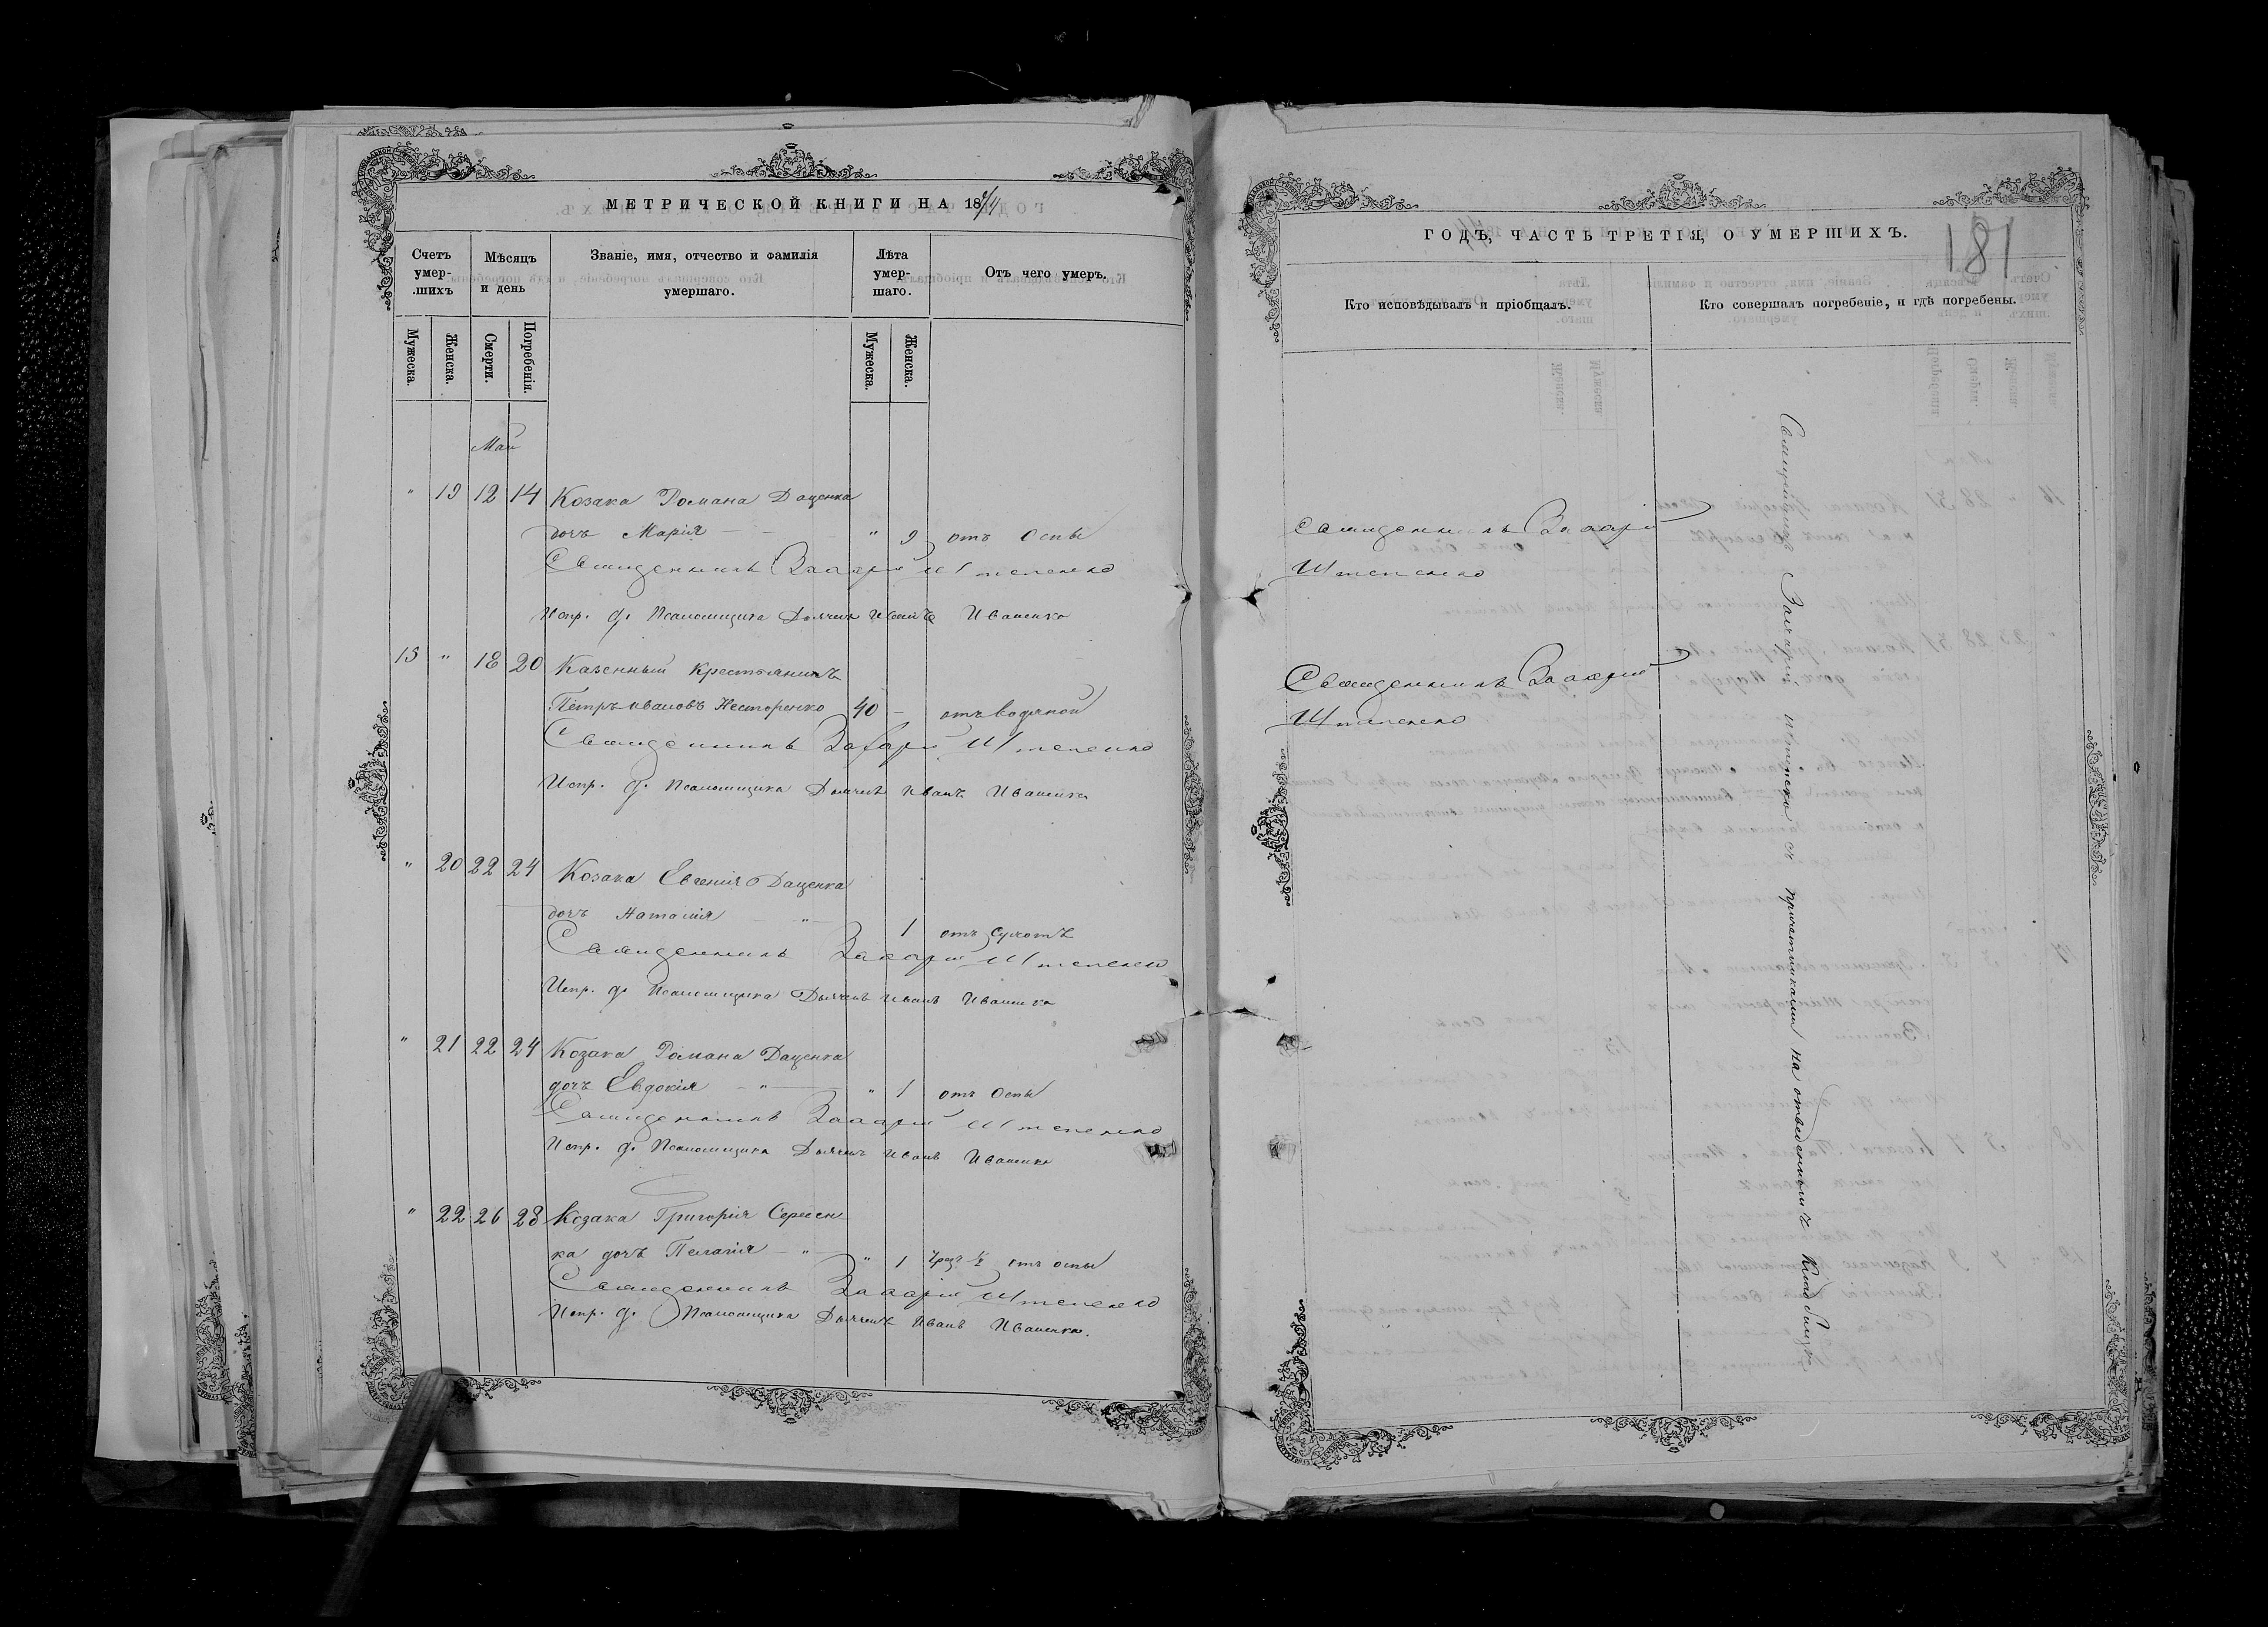 МЕТРИЧЕСКОЙ КНИГИ НА 18
Счетъ умер-.шихъ
Мѣсяцъ и день
Званіе, имя, отчество и фамилія умершаго.
Лѣта умер-шаго.
Отъ чего умеръ.
Мужеска.
Женска.
Смерти.
Погребенія.
Мужеска.
Женска.
Май
" 19 12 14 Козака Романа Даценка
дочь Марія " 9 отъ Оспы
Священникъ Захарій Штепенко
Испр. д. Псаломщика Дьячекъ Иванъ Иваненко
15 " 18 20 Казенный Крестьянинъ
Петръ Ивановъ Несторенко 40 - отъ водяной
Священникъ Захарій Штепенко
Испр. д. Псаломщика Дьячекъ Иванъ Иваненко
" 20 22 24 Козака Евгенія Даценка
дочь Наталія " 1 отъ сухотъ
Священникъ Захарій Штепенко
Испр. д. Псаломщика Дьячекъ Иванъ Иваненко
" 21 22 24 Козака Романа Даценка
дочъ Евдокія " " 1 отъ Оспы
Священникъ Захарій Штепенко
Испр. д. Псаломщика Дьячекъ Иванъ Иваненко
" 22 26 28 Козака Григорія Сергеен-
ка дочъ Пелагія " " 1 отъ оспы
Священникъ Захарій Штепенко
Испр. д. Псаломщика Дьячекъ Иванъ Иваненко.
ГОДЪ, ЧАСТЬ ТРЕТІЯ, О УМЕРШИХЪ.
181
Кто исповѣдывалъ и пріобщалъ.
Кто совершалъ погребеніе, и гдѣ погребены.
Священникъ Захарій
Штепенко
Священникъ Захарій
Штепенко
Священникъ Захарій Штепенко съ причетниками на отведенномъ Кладбищѣ